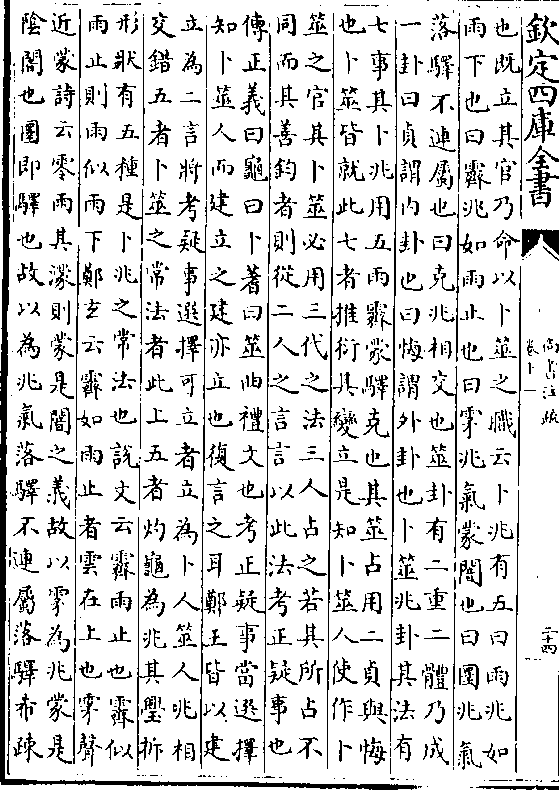 欽定四庫全書
尚書注疏
卷十一
二十四
也既立其官乃命以卜筮之職云卜兆有五曰雨兆如
雨下也曰霽兆如雨止也曰雺兆氣蒙闇也曰圛兆氣
落驛不連屬也曰克兆相交也筮卦有二重二體乃成
一卦曰貞謂内卦也曰悔謂外卦也卜筮兆卦其法有
七事其卜兆用五雨霽蒙驛克也其筮占用二貞與悔
也卜筮皆就此七者推衍其變立是知卜筮人使作卜
筮之官其卜筮必用三代之法三人占之若其所占不
同而其善鈞者則從二人之言言以此法考正疑事也
傳正義曰龜曰卜蓍曰筮曲禮文也考正疑事當選擇
知卜筮人而建立之建亦立也復言之耳鄭王皆以建
立為二言將考疑事選擇可立者立為卜人筮人兆相
交錯五者卜筮之常法者此上五者灼龜為兆其璺拆
形狀有五種是卜兆之常法也說文云霽雨止也霽似
雨止則雨似雨下鄭玄云霽如雨止者雲在上也雺聲
近蒙詩云零雨其濛則蒙是闇之義故以雺為兆蒙是
陰闇也圛即驛也故以為兆氣落驛不連屬落驛希疎